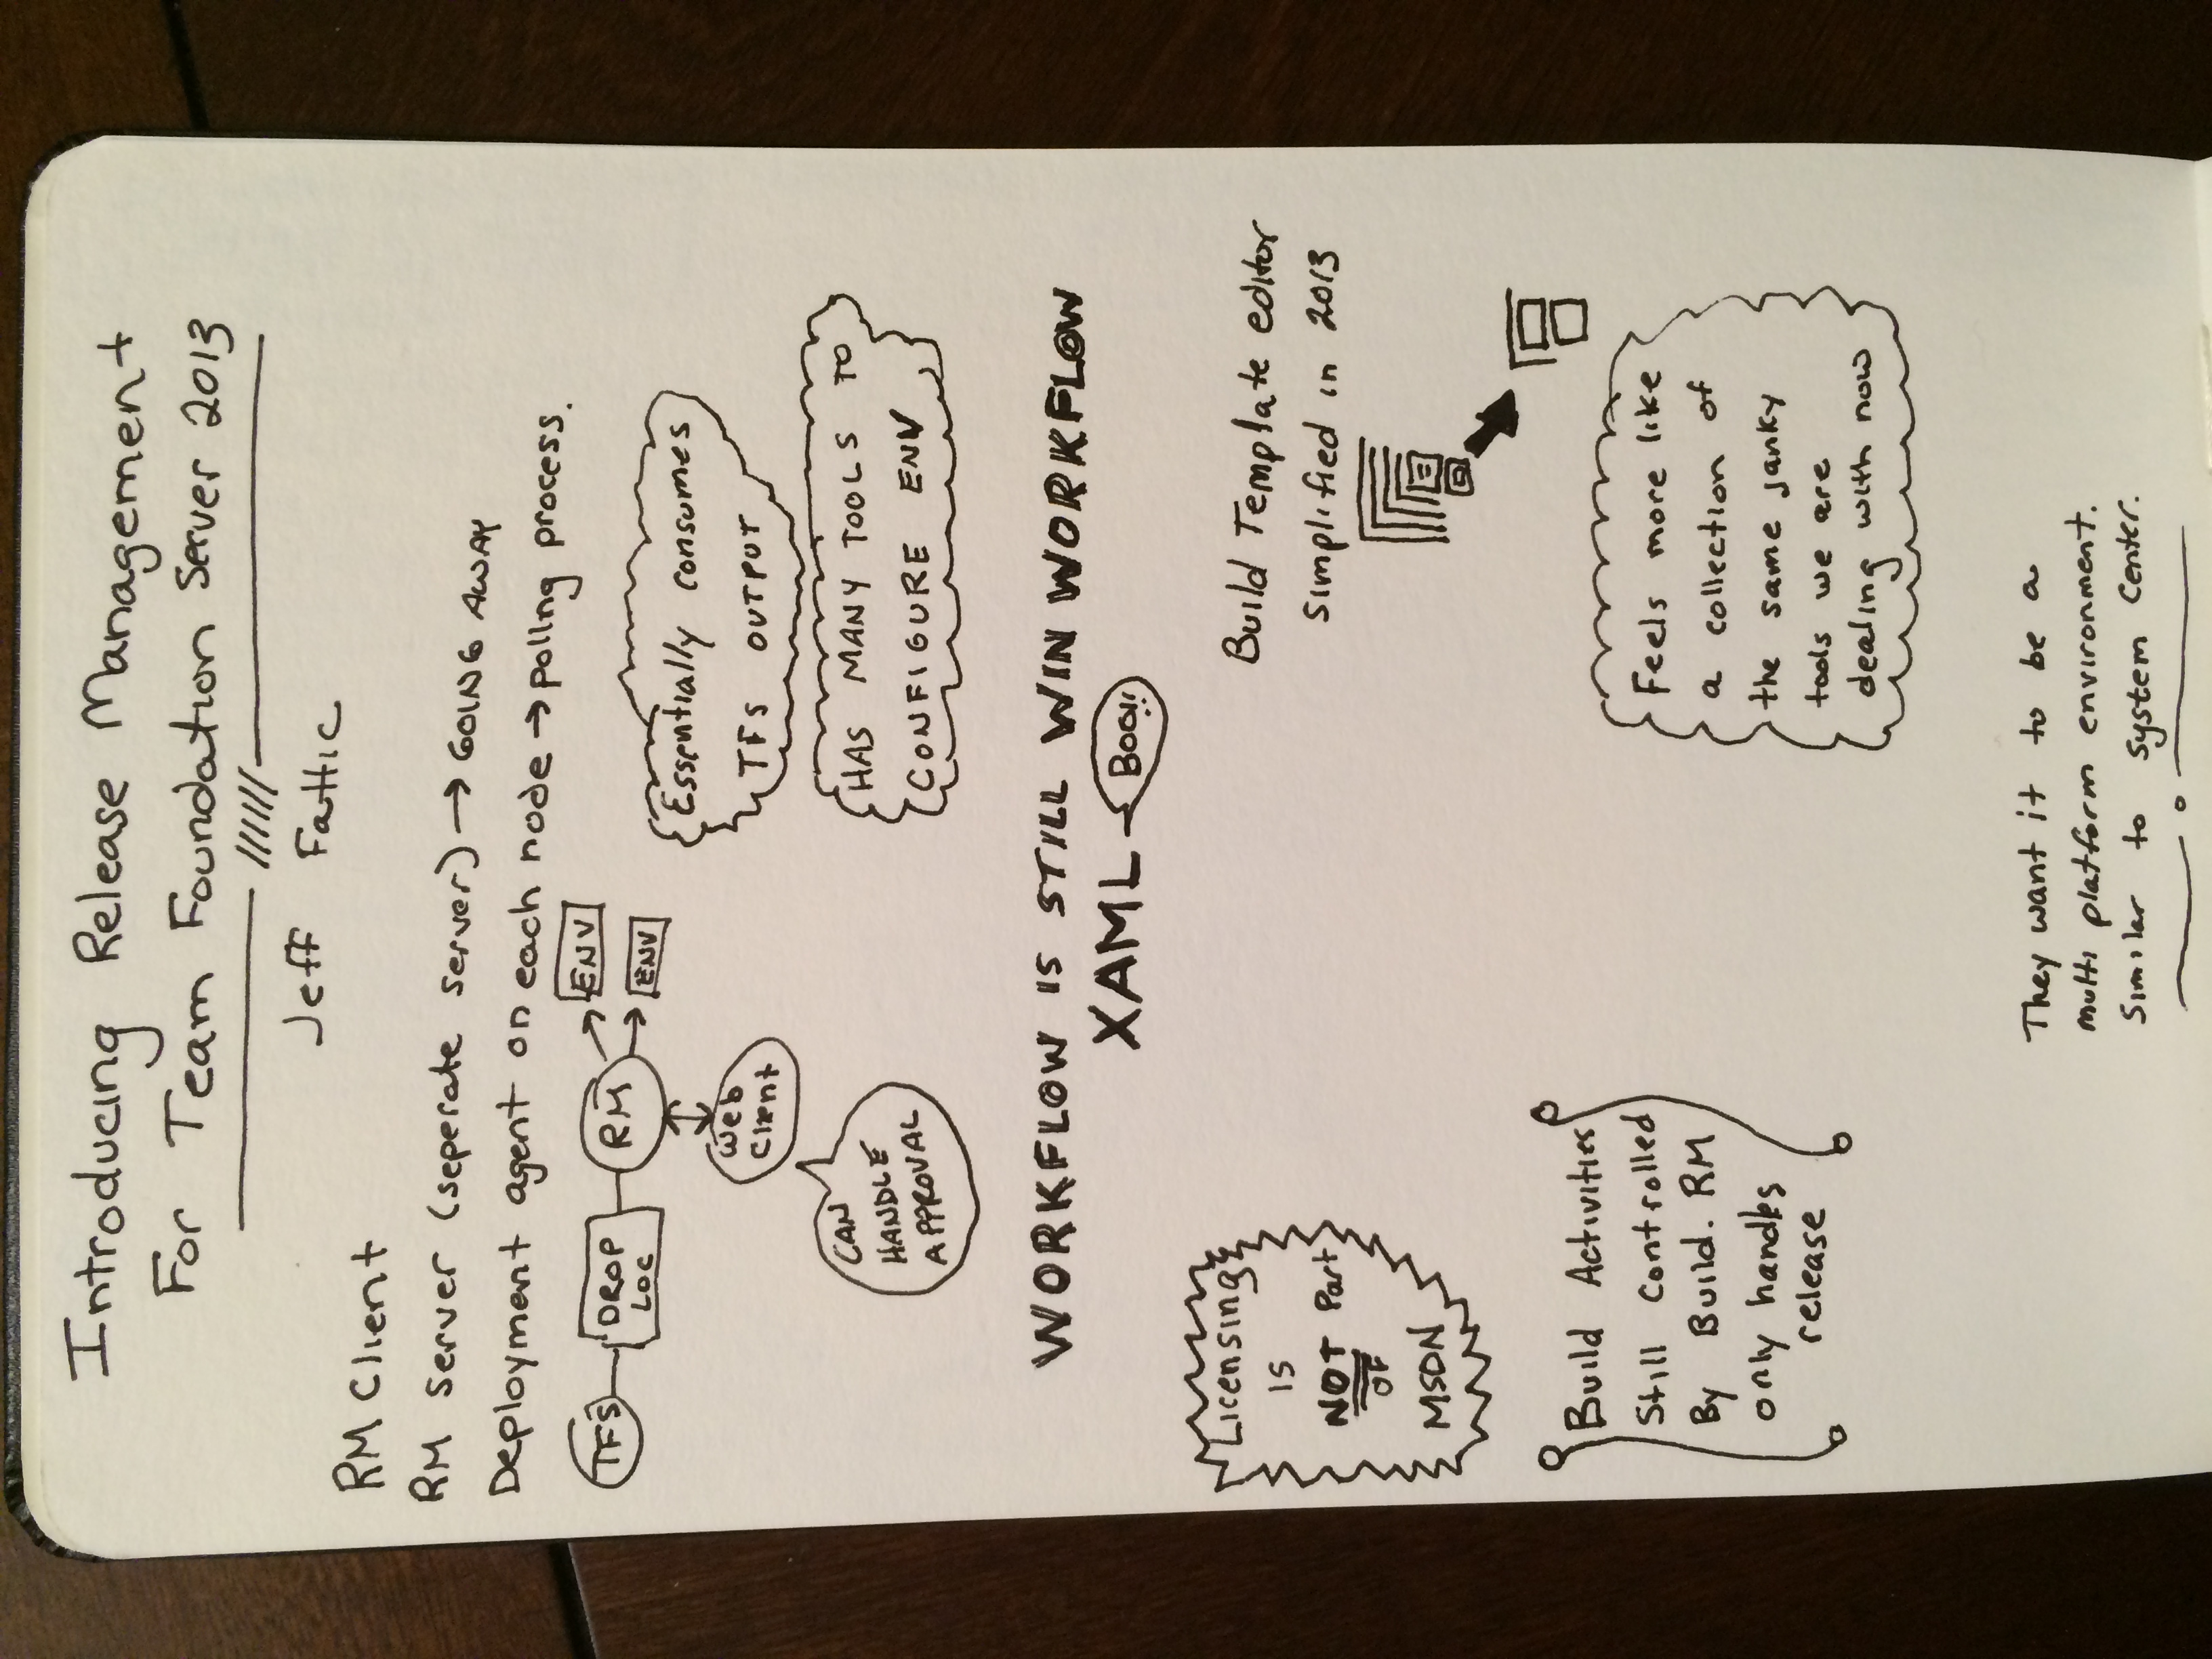 Introducing Release Management
For Team Foundation Server 2013
Jeff Fattic
RM Client
RM Server (seperate server) → GOING AWAY
Deployment agent on each node → pollng process.
TFS
DROP
LOC
RM
ENV
ENV
Web
Client
CAN
HANDLE
APPROVAL
Essentially consumes
TFS OUTPUT
HAS MANY TOOLS TO
CONFIGURE ENV
WORKFLOW IS STILL WIN WORKFLOW
XAML
Boo!!
Licensing
IS
NOT Part
OF
MSDN
Build Template editor
simplified in 2013
Build Activities
Still Controlled
By Build. RM
only handles
release
Feels more like
a collection of
the same janky
tools we are
dealing with now
They want it to be a
multi platform environment.
Similar to system center.